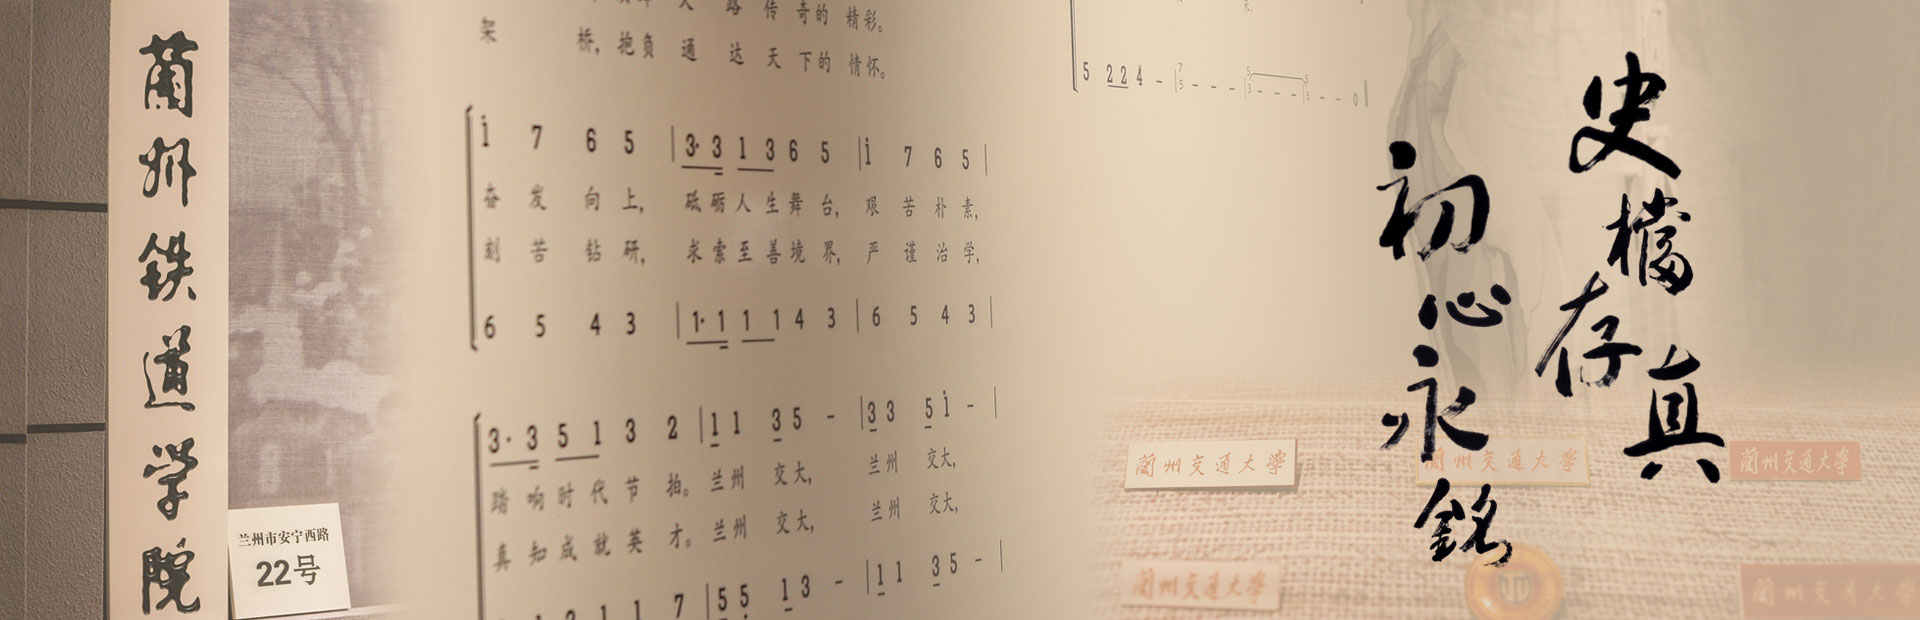 蘭州铁道学院
兰州市安宁西路
22号
路 传 奇的 精彩。
架 桥，抱负 通 达 天 下的 情怀。
i 7 6 5 | 3· 3 1 3 6 5 | i 7 6 5 |
奋 发 向 上， 砥砺人生舞台， 艰 苦 朴 素，
刻 苦 钻 研， 求索至善境界， 严 谨 治 学，
6 5 4 3 | 1· 1 1 1 4 3 | 6 5 4 3 |
3· 3 5 1 3 2 | 1 1 3 5 - | 3 3 5 i - |
踏 响 时 代 节 拍。 兰州 交大， 兰州 交大，
真 知 成 就 英 才。 兰州 交大， 兰州 交大，
1 1 7 | 5 5 1 3 - | 1 1 3 5 - |
5 2 2 4 - | 7 5 - - - | 5 3 - - - | 5 3 - - 0 ‖
史檔存真
初心永銘
蘭州交通大學
蘭州交通大學
蘭州交通大學
蘭州交通大學
蘭州交通大學